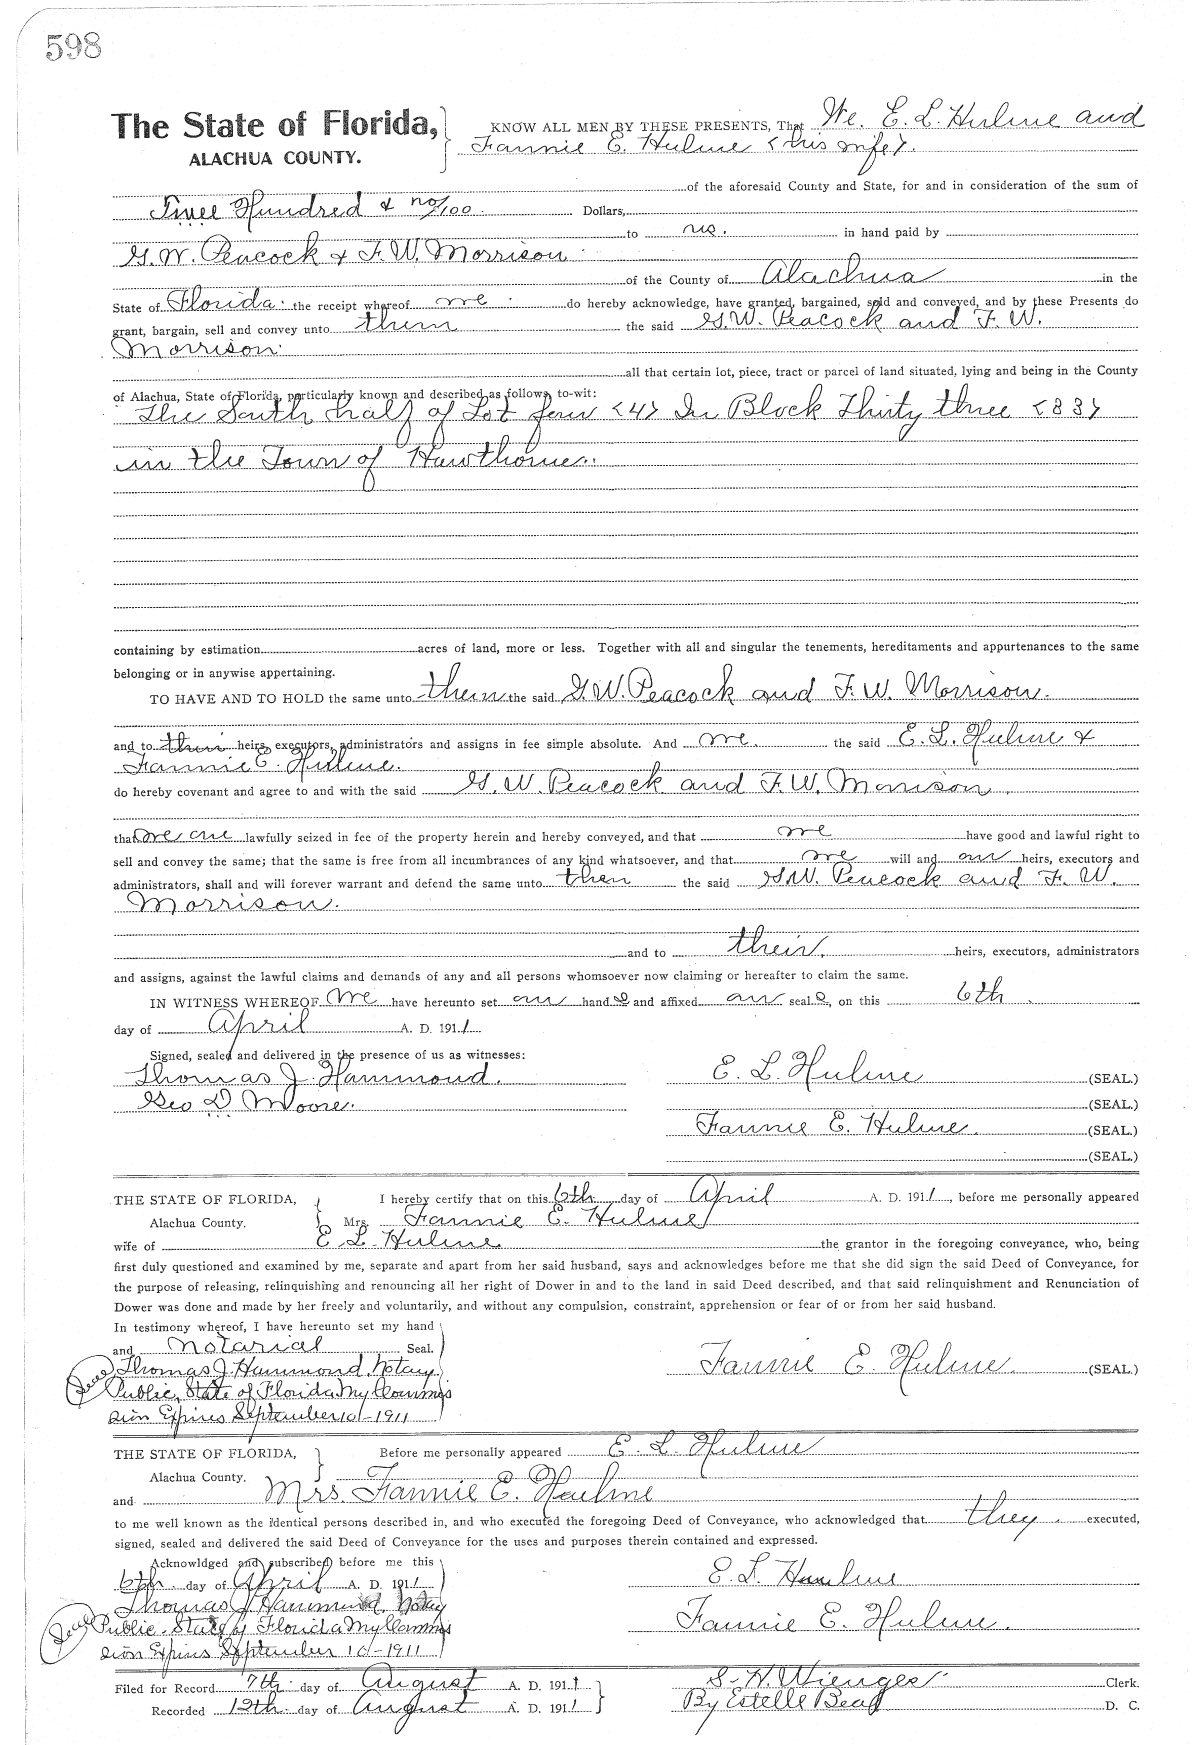 598
The State of Florida, KNOW ALL MEN BY THESE PRESENTS, That We, E. L. Hulme and
ALACHUA COUNTY. Fannie E. Hulme (his wife).
of the aforesaid County and State, for and in consideration of the sum of
Hundred & no/100 Dollars,
to us. in hand paid by
G. W. Peacock & F. W. Morrison
of the County of Alachua in the
State of Florida. the receipt whereof we do hereby acknowledge, have granted, bargained, sold and conveyed, and by these Presents do
grant, bargain, sell and convey unto them the said G. W. Peacock and F. W.
Morrison.
all that certain lot, piece, tract or parcel of land situated, lying and being in the County
of Alachua, State of Florida, particularly known and described as follows, to-wit:
The South half of Lot four (4) In Block Thirty three (33)
in the Town of Hawthorne.
containing by estimation acres of land, more or less. Together with all and singular the tenements, hereditaments and appurtenances to the same
belonging or in anywise appertaining.
TO HAVE AND TO HOLD the same unto them the said G. W. Peacock and F. W. Morrison.
and to their heirs, executors, administrators and assigns in fee simple absolute. And we the said E. L. Hulme &
Fannie E. Hulme.
do hereby covenant and agree to and with the said G. W. Peacock and F. W. Morrison,
that we are lawfully seized in fee of the property herein and hereby conveyed, and that we have good and lawful right to
sell and convey the same; that the same is free from all incumbrances of any kind whatsoever, and that we will and our heirs, executors and
administrators, shall and will forever warrant and defend the same unto them the said G. W. Peacock and F. W.
Morrison.
and to their, heirs, executors, administrators
and assigns, against the lawful claims and demands of any and all persons whomsoever now claiming or hereafter to claim the same.
IN WITNESS WHEREOF We have hereunto set our hands and affixed our seals, on this 6th
day of April A. D. 1911
Signed, sealed and delivered in the presence of us as witnesses:
Thomas J. Hammond. E. L. Hulme (SEAL.)
Geo D. Moore. (SEAL.)
Fannie E. Hulme. (SEAL.)
(SEAL.)
THE STATE OF FLORIDA, I hereby certify that on this 6th day of April A. D. 1911, before me personally appeared
Alachua County. Mrs. Fannie E. Hulme
wife of E. L. Hulme the grantor in the foregoing conveyance, who, being
first duly questioned and examined by me, separate and apart from her said husband, says and acknowledges before me that she did sign the said Deed of Conveyance, for
the purpose of releasing, relinquishing and renouncing all her right of Dower in and to the land in said Deed described, and that said relinquishment and Renunciation of
Dower was done and made by her freely and voluntarily, and without any compulsion, constraint, apprehension or fear of or from her said husband.
In testimony whereof, I have hereunto set my hand
and Notarial Seal.
Seal Thomas J. Hammond, Notary Fannie E. Hulme. (SEAL)
Public, State of Florida My Commis
sion Expires September 10-1911
THE STATE OF FLORIDA, Before me personally appeared E. L. Hulme
Alachua County.
and Mrs. Fannie E. Hulme
to me well known as the identical persons described in, and who executed the foregoing Deed of Conveyance, who acknowledged that they executed,
signed, sealed and delivered the said Deed of Conveyance for the uses and purposes therein contained and expressed.
Acknowldged and subscribed before me this
6th day of April A. D. 1911 E. L. Hulme
Thomas J. Hammond, Notary
Seal Public, State of Florida My Commis Fannie E. Hulme.
sion Expires September 10-1911
Filed for Record 7th day of August A. D. 1911 S. H. Wienges Clerk.
Recorded 12th day of August A. D. 1911 By Estelle D. C.